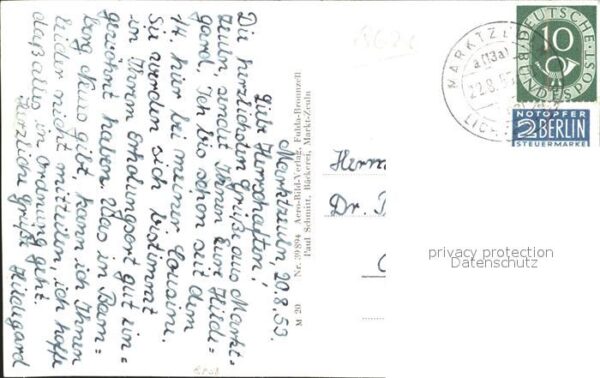 Marktzeuln, 20.8.53.
Liebe Herrschaften!
Die herzlichsten Grüße aus Markt-
zeuln, sendet Ihnen Eure Hilde-
gard. Ich bis schon seit dem
14. hier bei meiner Cousine.
Sie werden sich bestimmt
in Ihrem Erholungsort gut ein=
gewöhnt haben. Was in Bam=
berg Neues gibt, kann ich Ihnen
leider nicht mitteilen, ich hoffe
daß alles in Ordnung geht.
Herzliche Grüße Hildegard
M 20 Nr. 39894 Aero-Bild-Verlag, Fulda-Bronnzell
Paul Schmitt, Bäckerei, Markt-Zeuln
MARKTZ
a(13a)
22.8.53
LICH
DEUTSCHE BUNDESPOST
10
NOTOPFER
2 BERLIN
STEUERMARKE
Herrn
Dr.
privacy protection
Datenschutz